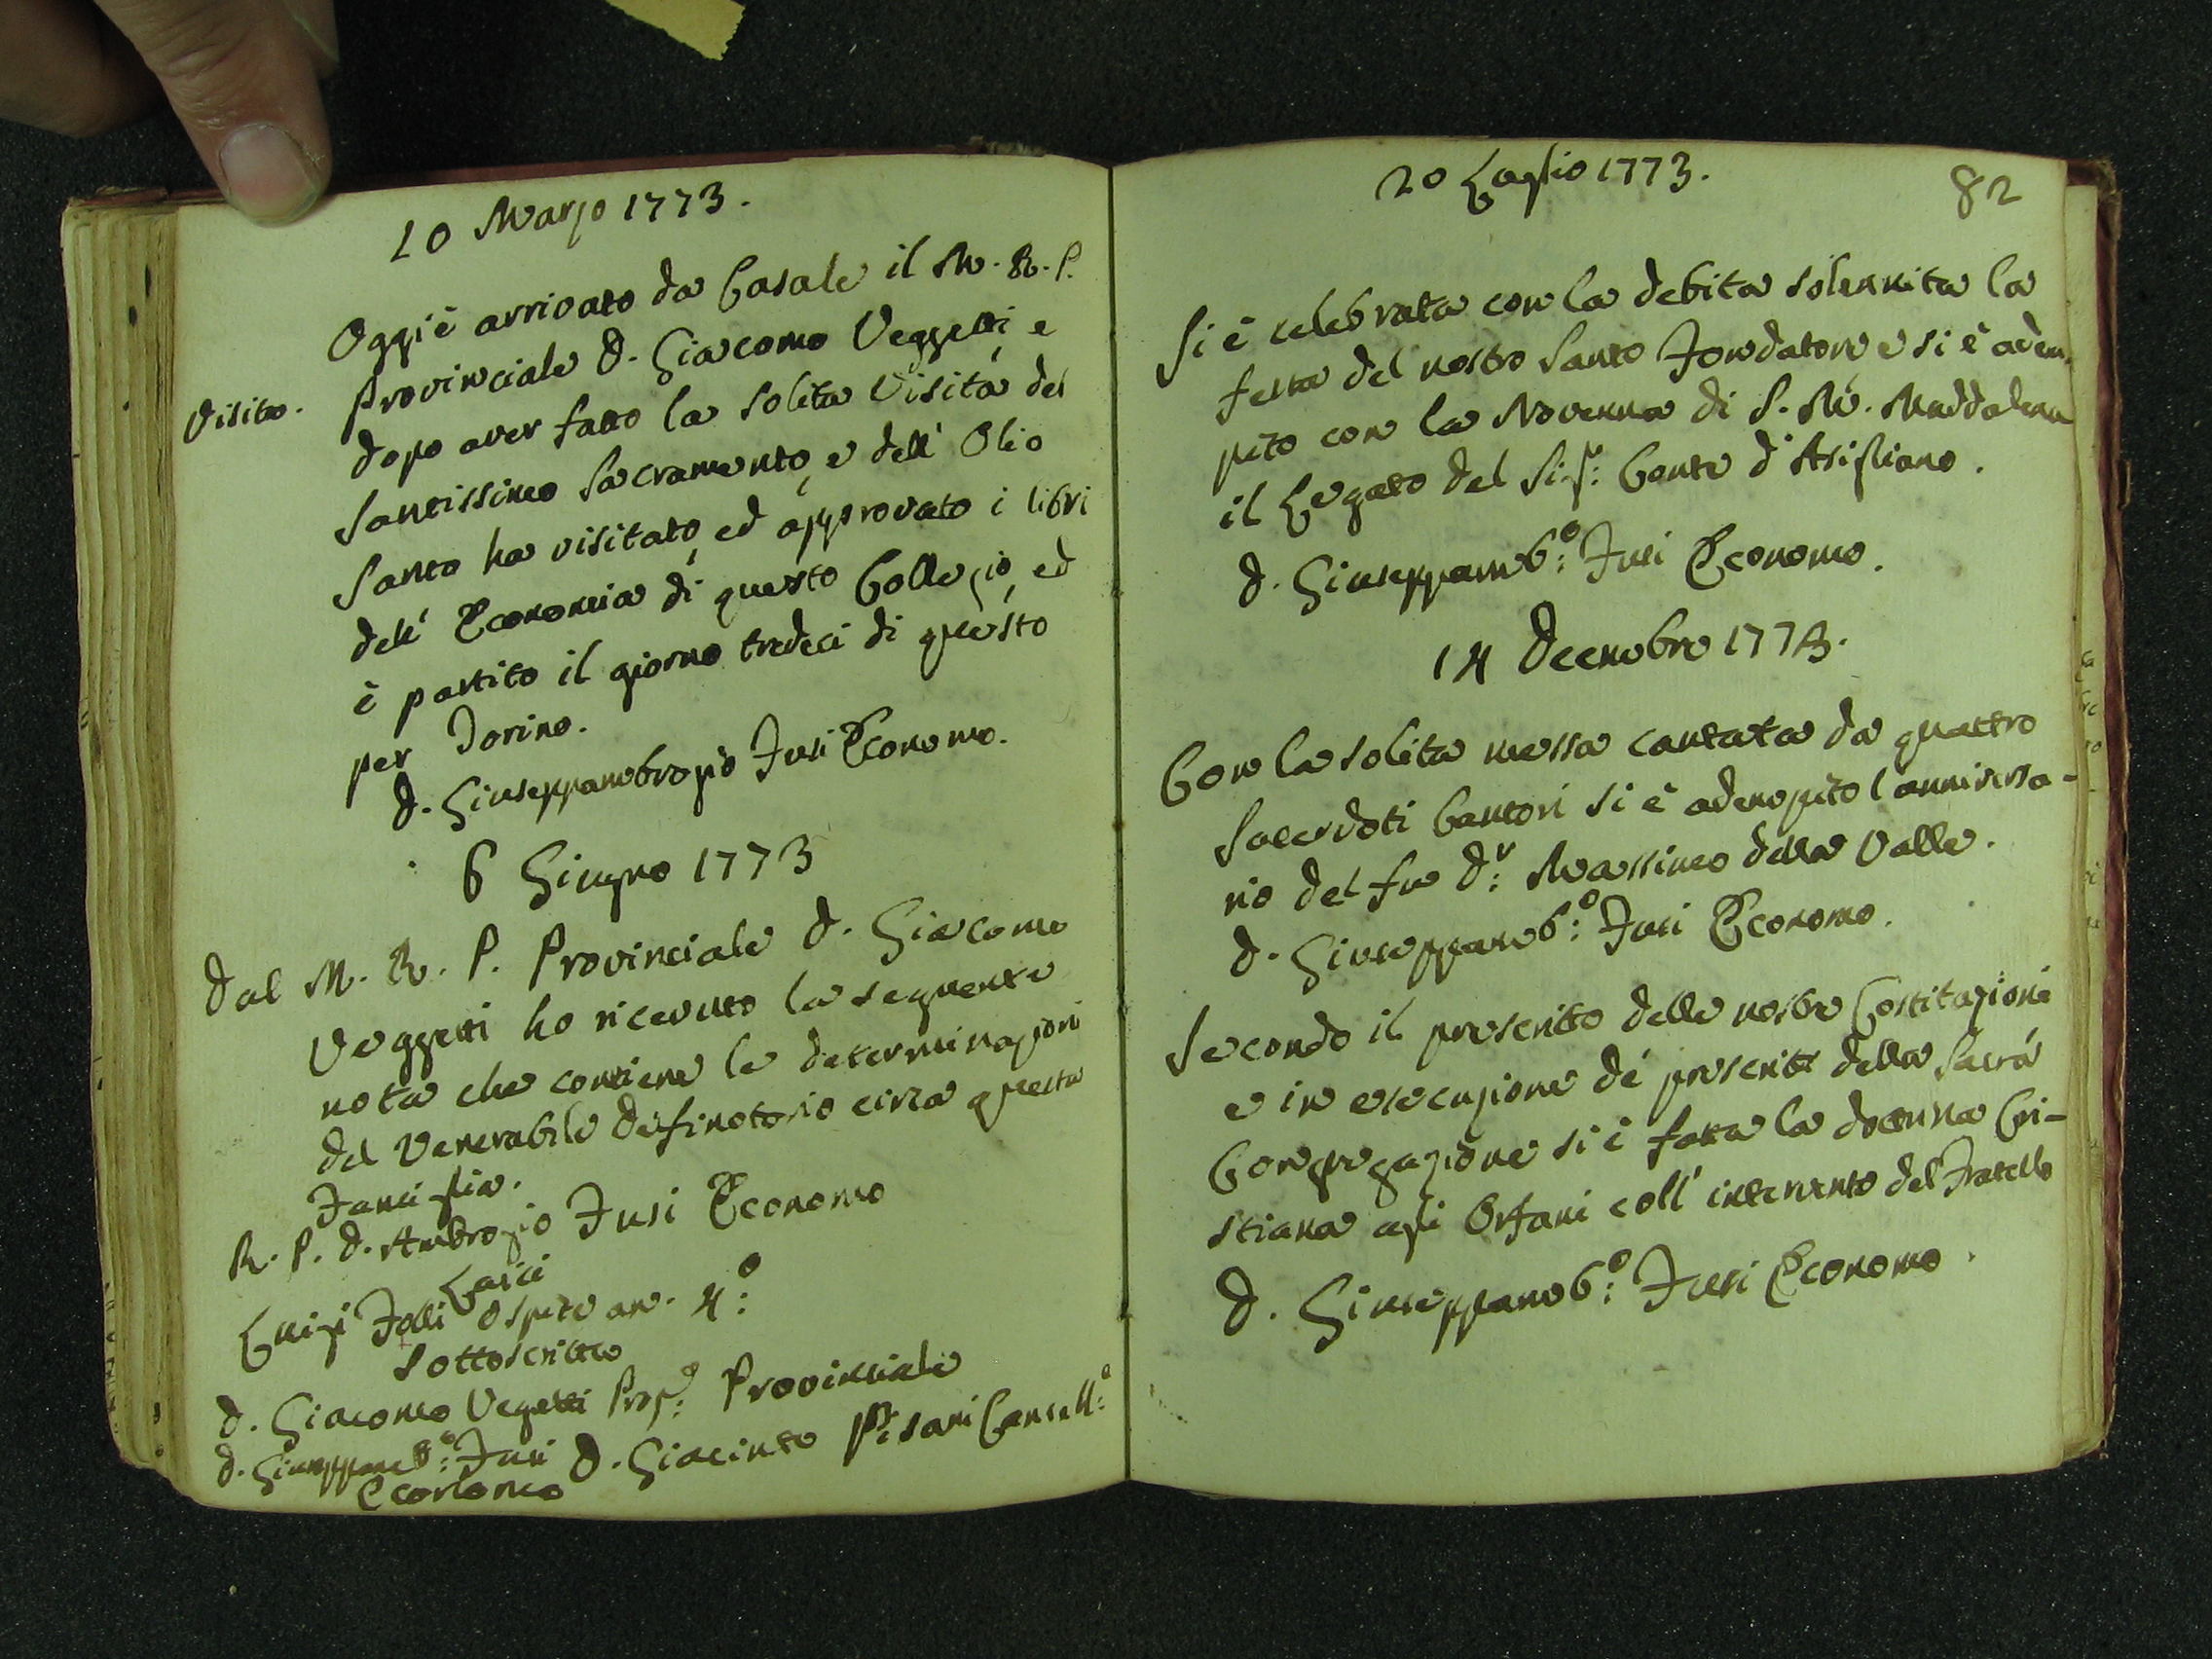 10 Marzo 1773.
Oggi è arrivato da Casale il M. R. P.
Visita. Provinciale D. Giacomo Veggetti, e
dopo aver fatto la solita Visita del
Santissimo Sacramento, e dell' Olio
Santo ha visitato, ed approvato i libri
dell' Economia di questo Collegio, ed
è partito il giorno tredeci di questo
per Torino.
D. Giuseppambrogio Fusi Economo.
6 Giugno 1773
Dal M. R. P. Provinciale D. Giacomo
Veggetti ho ricevuto la seguente
nota che contiene le determinazioni
del Venerabile Definotorio circa questa
Famiglia.
R. P. D. Ambrogio Fusi Economo
Laici
Luigi Folli Ospite an. 4:º
Sottoscritto
D. Giacomo Vegetti Prop:º Provinciale
D. Giuseppamb:º Fusi D. Giacinto Pisani Cancell:º
Economo
20 Luglio 1773.
82
Si è celebrata con la debita solennita la
festa del nostro Santo Fondatore, e si è adem-
pito con la Novenna di S. M. Maddalena
il Legato del Sig:r Conte d'Asigliano.
D. Giuseppamb:º Fusi Economo.
14 Decembre 1773.
Con la solita messa cantata da quattro
Sacerdoti Cantori si è adempito l'anniversa-
rio del fu D:r Massimo della Valle.
D. Giuseppamb:º Fusi Economo.
Secondo il prescritto delle nostre Costituzioni
e in esecuzione de' prescritti della Sacra
Congregazione si è fatta la dottrina Cri-
stiana agli Orfani coll' intervento del Fratello
D. Giuseppamb:º Fusi Economo.